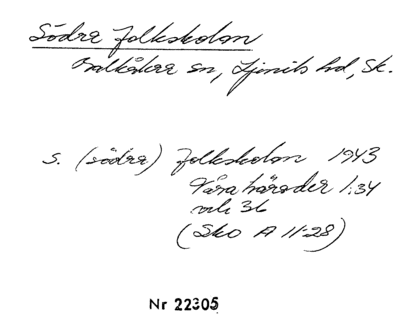 Södra folkskolan
Balkåkra sn, Ljunits hd, Sk.
s. (södra) folkskolan 1943
Våra härader 1:34
och 36
(Sko A 11-28)
Nr 22305